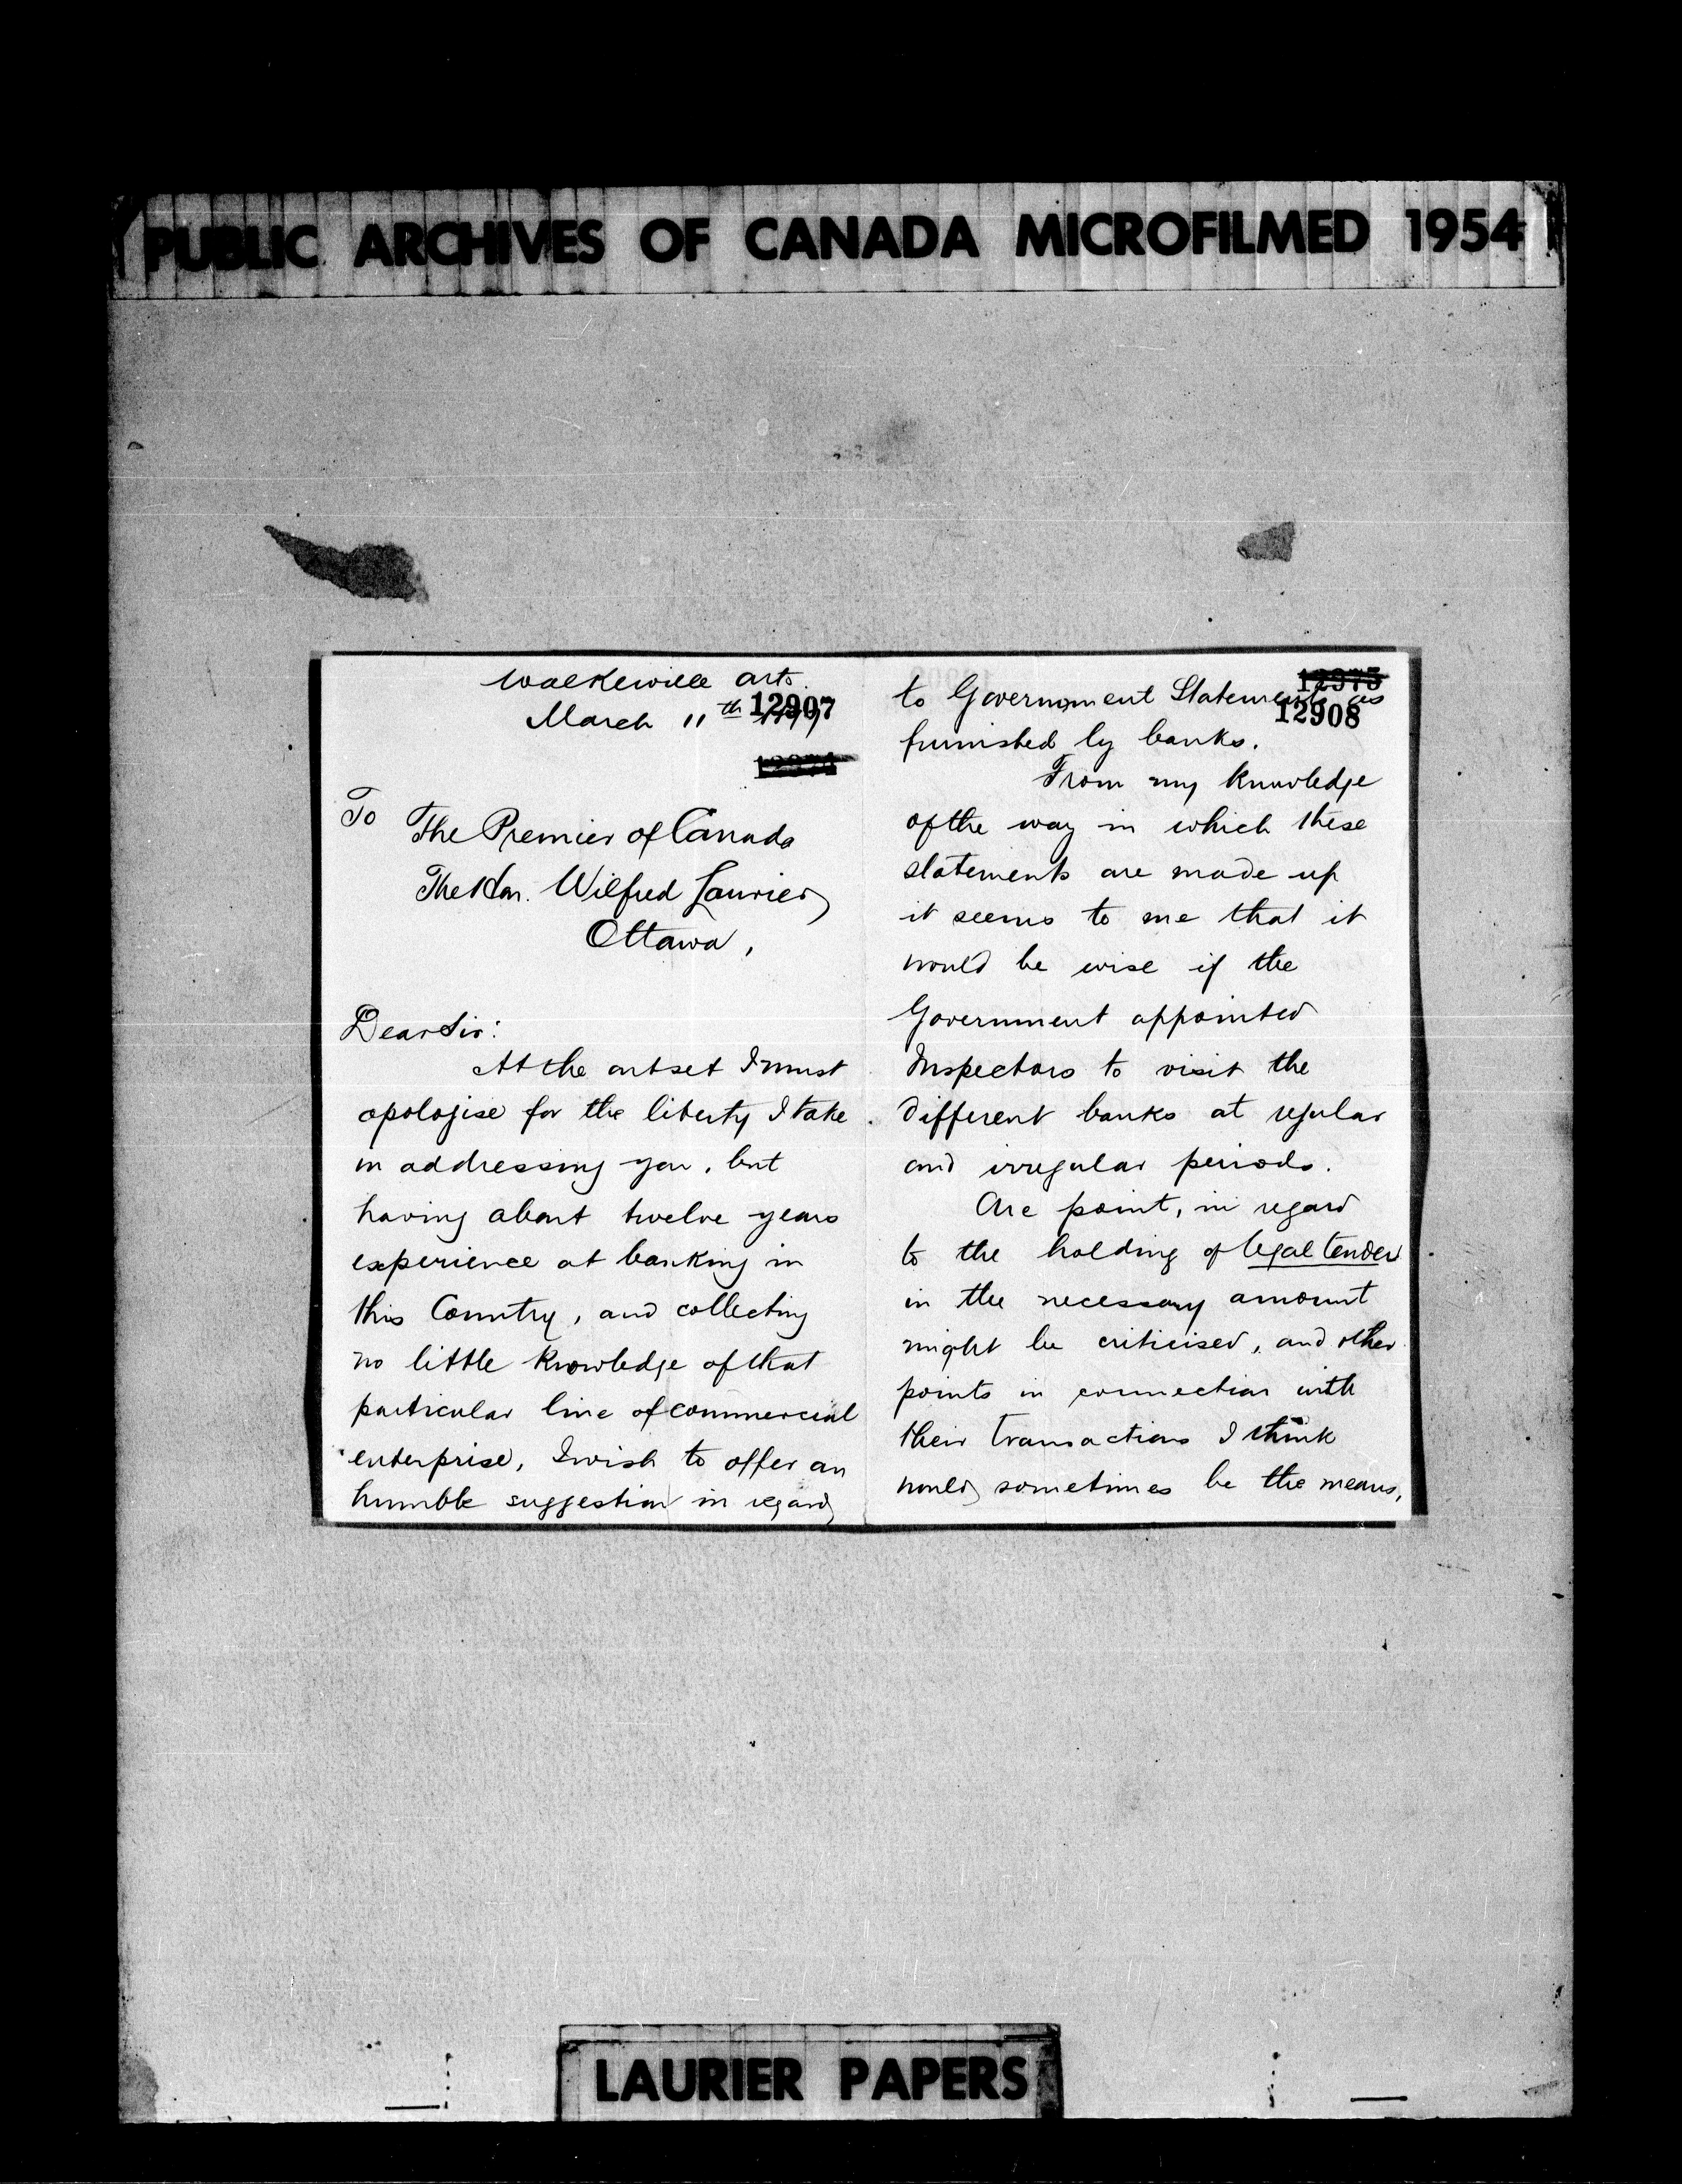 PUBLIC ARCHIVES OF CANADA MICROFILMED 1954
Walkerville Ont.
March 11th
12907
To
The Premier of Canada
The Hon. Wilfred Laurier
Ottawa,
Dear Sir:
At the outset I must
apologise for the liberty I take
in addressing you, but
having about twelve years
experience at banking in
this Country, and collecting
no little knowledge of that
particular line of commercial
enterprise, I wish to offer an
humble suggestion in regard
12975
to Government Statements as
12908
furnished by banks.
From my knowledge
of the way in which these
statements are made up
it seems to me that it
would be wise if the
Government appointed
Inspectors to visit the
different banks at regular
and irregular periods.
One point, in regard
to the holding of legal tender
in the necessary amount
might be criticised, and other
points in connection with
their transactions I think
would sometimes be the means,
LAURIER PAPERS